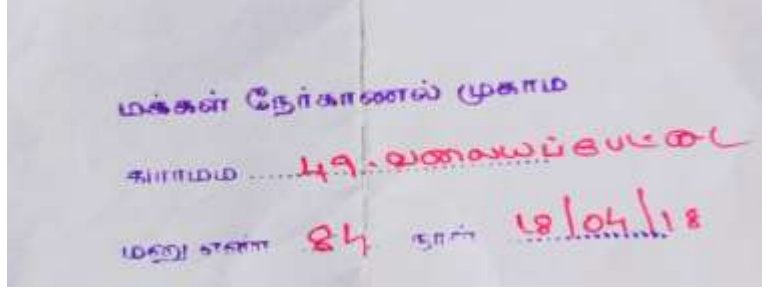 மக்கள் நேர்காணல் முகாம்
கிராமம் ..... 49. வளையப்பேட்டை
மனு எண் 84 நாள் 18/04/18